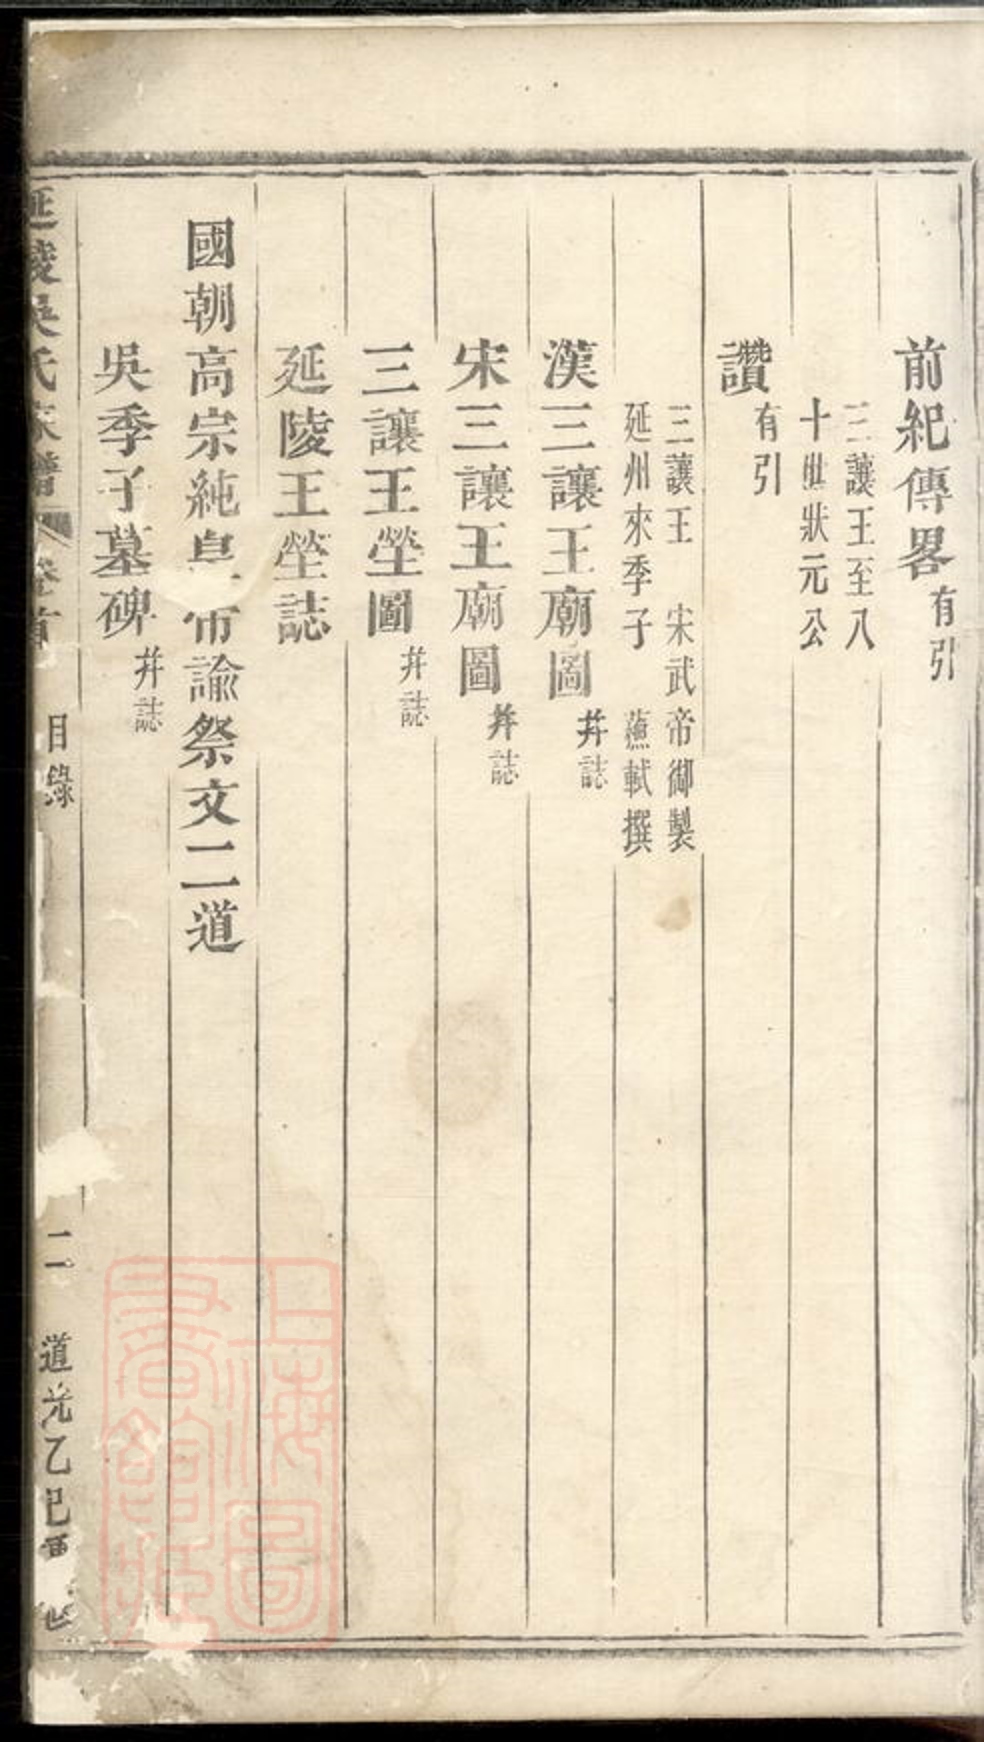 前紀傳畧有引
三讓王至八
十世狀元公
讚有引
三讓王 宋武帝御製
延州來季子 蘓軾撰
漢三讓王廟圖并誌
宋三讓王廟圖并誌
三讓王塋圖并誌
延陵王塋誌
國朝高宗純皇帝諭祭文二道
吳季子墓碑并誌
延陵吳氏宗譜 卷首 目錄 二 道光乙巳重修
上海圖書館藏